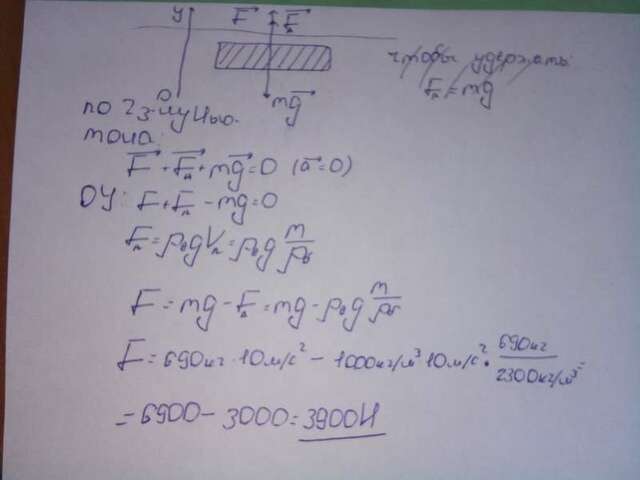 y F⃗ F⃗ₐ
чтобы удержать:
Fₐ = mg
O
mg⃗
по 2 з-ну Нью-
тона:
F⃗ + F⃗ₐ + mg⃗ = 0 (a⃗ = 0)
OY: F + Fₐ - mg = 0
Fₐ = ρв g Vп = ρв g m/ρб
F = mg - Fₐ = mg - ρв g m/ρб
F = 690 кг · 10 м/с² - 1000 кг/м³ 10 м/с² · 690 кг / 2300 кг/м³ =
= 6900 - 3000 = 3900 Н